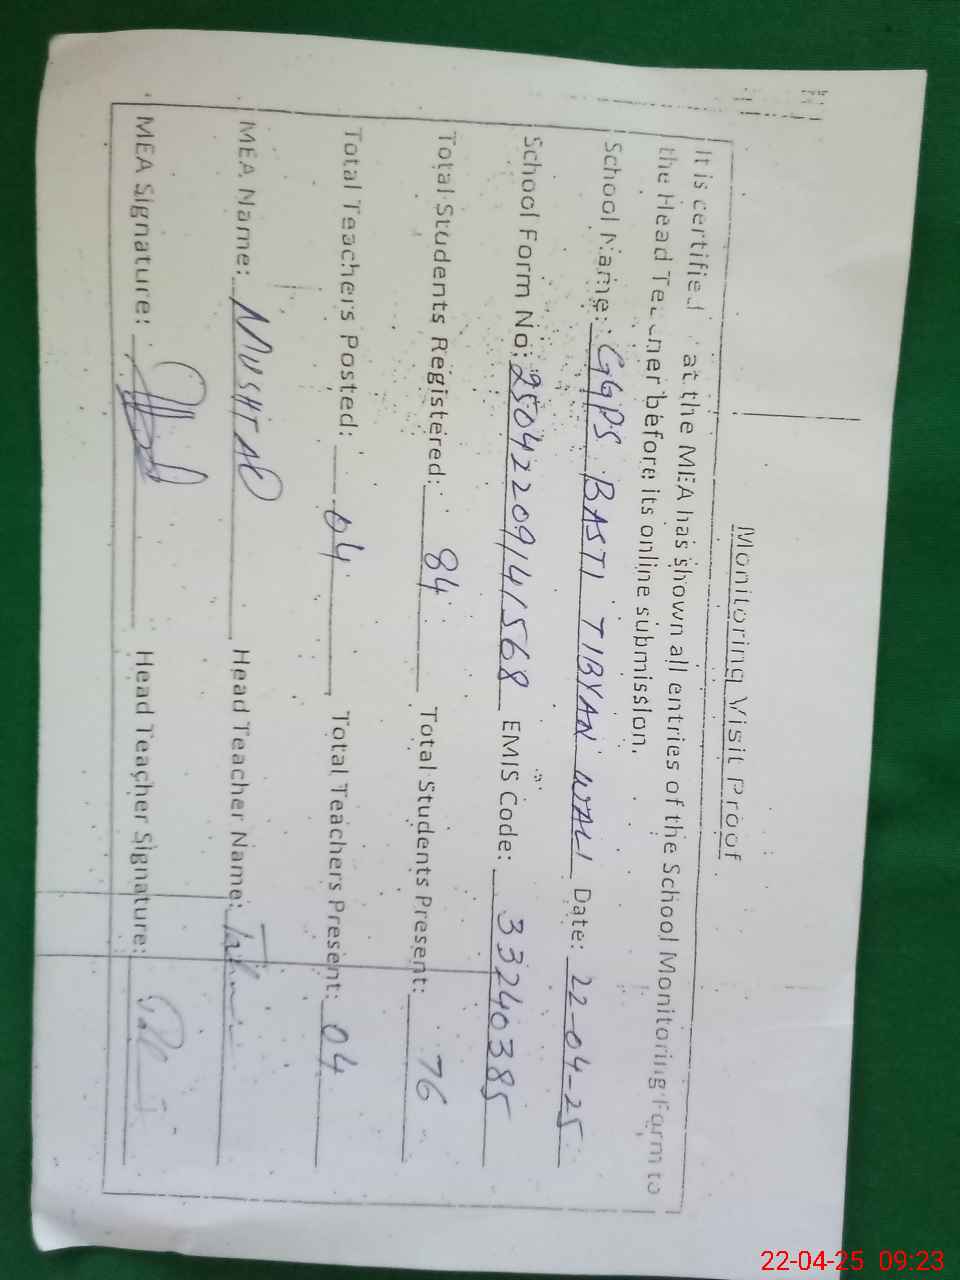 Monitoring Visit Proof
It is certified at the MEA has shown all entries of the School Monitoring Form to
the Head Teacher before its online submission.
School Name: GGPS BASTI TIBYAN WALI Date: 22-04-25
School Form No: 25042209141568 EMIS Code: 33240385
Total Students Registered: 84 Total Students Present: 76
Total Teachers Posted: 04 Total Teachers Present: 04
MEA Name: MUSHTAQ Head Teacher Name:
MEA Signature: Head Teacher Signature:
22-04-25 09:23